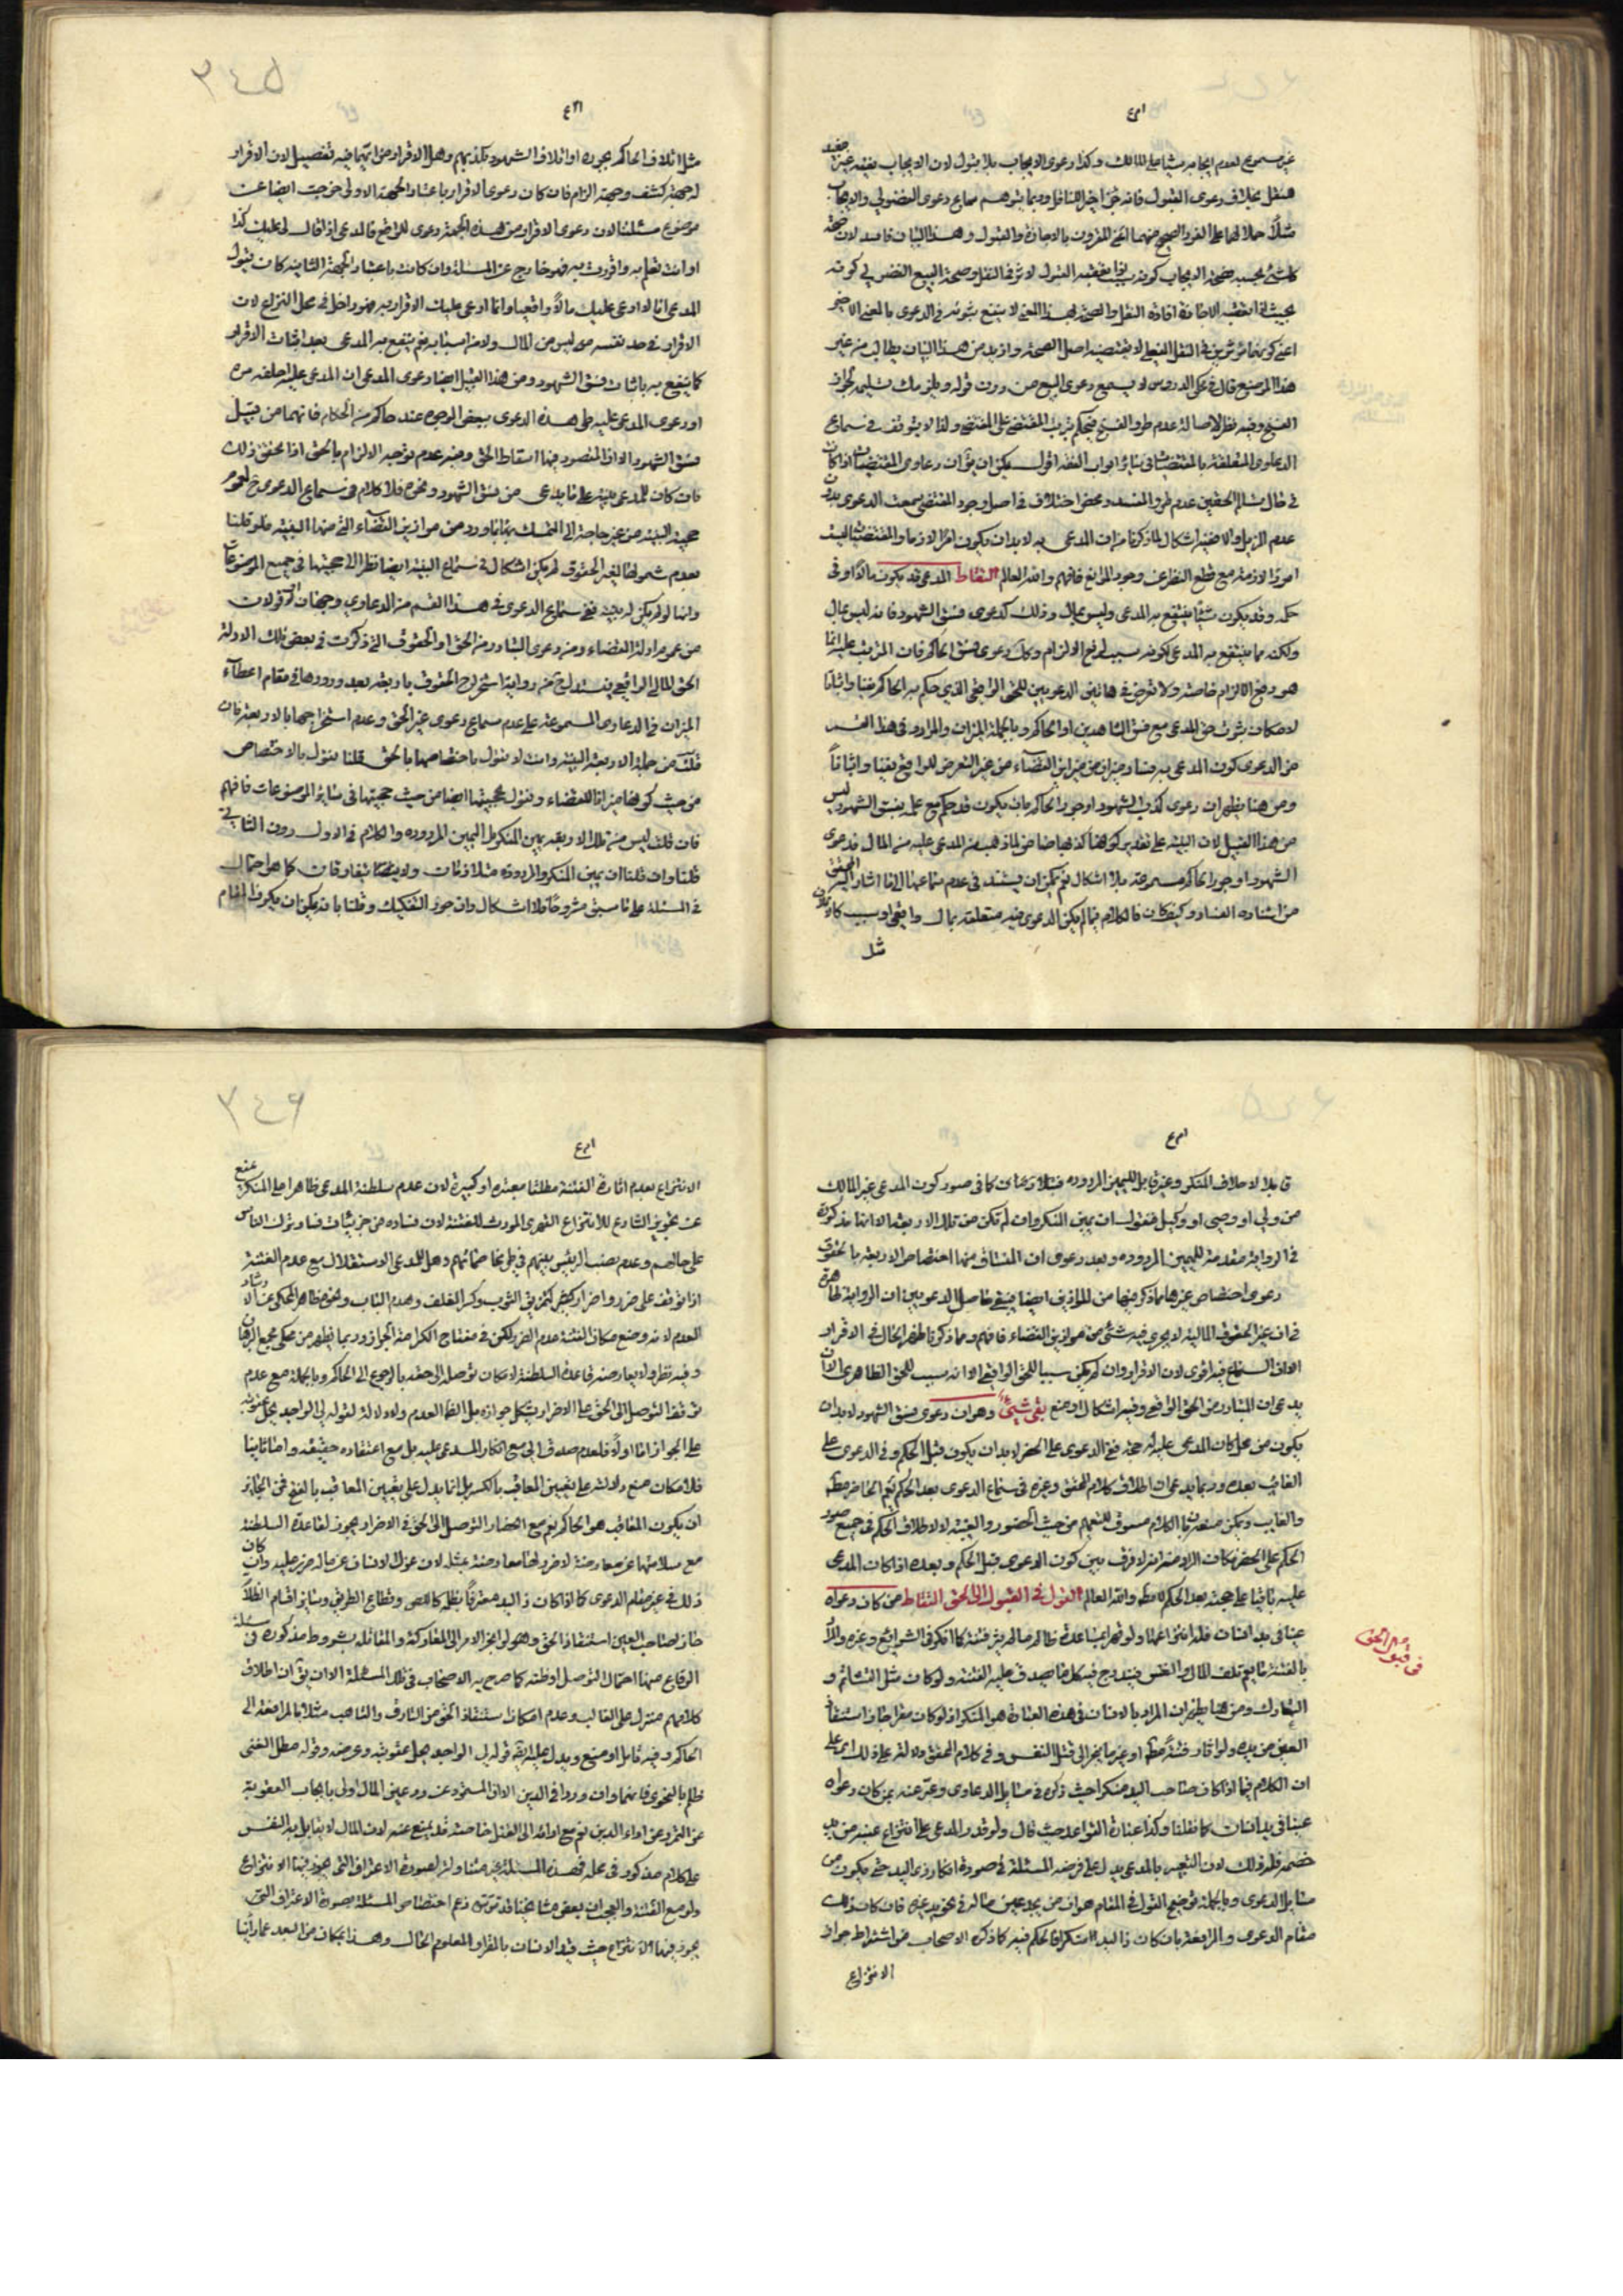 غير مسموع لعدم ايجابه شيئا على المالك وكذا دعوى الايجاب بلا قبول لان الايجاب بنفسه غير
بخلاف دعوى القبول فانه جزء اخير للناقل وربما يتوهم سماع دعوى الفضولي والايجاب
مثلا حملا لهما على الفرد الصحيح منهما اعني المقرون بالاجازة والقبول وهذا البيان فاسد لان صحة
كل شيء بحسبه فصحة الايجاب كونه بحيث لو تعقبه القبول لاثر في النقل وصحة البيع الفضولي كونه
بحيث لو تعقبه الاجازة افاد النقل والصحة بهذا المعنى لا ينفع ثبوته في الدعوى بالمعنى الاخر
اعني كونهما مؤثرين في النقل الفعلي لا يقتضيه اصل الصحة وازيد من هذا البيان يطالب من غير
هذا الموضع قال في محكي الدروس لا يسمع دعوى البيع من دون قوله ويلزمك تسليمه لجواز
الفسخ وفيه نظر لاصالة عدم طرو الفسخ فيحكم بترتب المقتضى على المقتضي ولذا لا يتوقف في سماع
الدعاوى المتعلقة بالمقتضيات في سائر ابواب الفقه اقول يمكن ان يقال ان دعاوى المقتضيات اذا كان
في حال تسالم الخصمين عدم طرو المفسد ومحض اختلاف في اصل وجود المقتضي سمعت الدعوى بدون
عدم المزيل والا ففيه اشكال لما ذكرنا من ان المدعى به لا بد ان يكون امرا لازما والمقتضيات ليست
امورا لازمة مع قطع النظر عن وجود الموانع فافهم والله العالم التقاط المدعى قد يكون مالا او في
حكمه وقد يكون شيئا ينتفع به المدعي وليس بمال وذلك كدعوى فسق الشهود فانه ليس بمال
ولكنه مما ينتفع به المدعي لكونه سببا لرفع الالزام وكذا دعوى فسق الحاكم فان المترتب عليه انما
هو رفع الالزام خاصة ولا تعرض في هاتين الدعويين للحق الواقعي الذي حكم به الحاكم نفيا واثباتا
لامكان ثبوت حق المدعي مع فسق الشاهدين او الحاكم وبالجملة الميزان والمراد في هذا القسم
من الدعوى كون المدعى به فساد ميزان من موازين القضاء من غير التعرض للواقع نفيا واثباتا
ومن هنا يظهر ان دعوى كذب الشهود او جور الحاكم بان يكون قد حكم مع علمه بفسق الشهود ليس
من هذا القبيل لان البينة على تقدير كونها كذبا ضامن لما ذهب من المدعى عليه من المال فدعوى
الشهود او جور الحاكم مسموعة بلا اشكال نعم يمكن ان يستند في عدم سماعها الى ما اشار اليه المحقق
من اثارة الفساد وكيف كان فالكلام فيما لم يكن الدعوى فيه متعلقة بمال واقعي او سبب كان
مثل
مثل اتلاف الحاكم بجوره او اتلاف الشهود بكذبهم وهل الاقرار من ايهما فيه تفصيل لان الاقرار
له جهة كشف وجهة الزام فان كان دعوى الاقرار باعتبار الجهة الاولى خرجت ايضا عن
موضوع مسئلتنا لان دعوى الاقرار من هذه الجهة دعوى للواقع فالمدعي اذا قال لي عليك كذا
او انت تعلم به واقررت به فهو خارج عن المسئلة وان كانت باعتبار الجهة الثانية كان يقول
المدعي انا لا ادعي عليك مالا واقعيا وانما ادعي عليك الاقرار به فهو داخل في محل النزاع لان
الاقرار في حد نفسه ليس من المال ولا من اسبابه نعم ينتفع به المدعي بعد اثبات الاقرار
كما ينتفع به باثبات فسق الشهود ومن هذا القبيل ايضا دعوى المدعي ان المدعى عليه احلفه مرة
او دعوى المدعى عليه في هذه الدعوى ببعض الوجوه عند حاكم من الحكام فانهما من قبيل
فسق الشهود اذ المقصود منها اسقاط الحق ومنه عدم توجه الالزام بالحق اذا تحقق ذلك
فان كان للمدعي بينة على ما يدعي من فسق الشهود ونحوه فلا كلام في سماع الدعوى ح لعموم
حجية البينة من غير حاجة الى التمسك بما ورد من موازين القضاء التي منها البينة فلو قلنا
بعدم شمولها لغير الحقوق لم يكن اشكال في سماع البينة ايضا نظرا الى حجيتها في جميع الموضوعات
واما لو لم يكن له بينة ففي سماع الدعوى في هذا القسم من الدعاوي وجهان او قولان
من عموم ادلة القضاء ومن دعوى التبادر من الحق او الحقوق التي ذكرت في بعض تلك الادلة
الحق المالي الواقعي فيستدل ح برواية استخراج الحقوق باربعة بعد ورودها في مقام اعطاء
الميزان في الدعاوى المسموعة على عدم سماع دعوى غير الحق وعدم استخراجها بالاربعة فان
قلت من جملة الاربعة البينة وانت لا تقول باختصاصها بالحق قلنا نقول بالاختصاص
من حيث كونها ميزانا للقضاء ونقول بحجيتها ايضا من حيث حجيتها في سائر الموضوعات فافهم
فان قلت ليس من تلك الاربعة يمين المنكر بل اليمين المردودة والكلام في الاول دون الثاني
قلنا وان قلنا ان يمين المنكر والمردودة متلازمان ولا يتفارقان كما هو احتمال
في المسئلة على ما سبق مشروحا فلا اشكال وان جوزنا التفكيك وقلنا بانه يمكن ان يكون المقام
قابلا لاحلاف المنكر وغير قابل لليمين المردودة فيتلازمان كما في صور كون المدعي غير المالك
من ولي او وصي او وكيل فنقول ان يمين المنكر وان لم تكن من تلك الاربعة الا انها مذكورة
في الرواية مقدمة لليمين المردودة وبعد دعوى ان المنساق منها اختصاص الاربعة بالحقوق
دعوى اختصاص غيرها مما ذكر فيها من الموازين ايضا فيبقى حاصل الدعويين ان الرواية ظاهرة
في ان غير الحقوق المالية لا يجري فيه شيء من موازين القضاء فافهم ومما ذكرنا ظهر الحال في الاقرار
الا ان السماع فيه اقوى لان الاقرار وان لم يكن سببا للحق الواقعي الا انه سبب للحق الظاهري الا ان
يدعى ان المتبادر من الحق الواقعي وفيه اشكال او منع بقي شيء وهو ان دعوى فسق الشهود لا بد ان
يكون من محل كان المدعى عليه له حجة ففي الدعوى على الحاضر لا بد ان يكون قبل الحكم وفي الدعوى على
الغائب بعده وربما يدعى ان اطلاق كلام المحقق وغيره في سماع الدعوى بعد الحكم يعم الحاضر مطلقا
والغايب ويمكن منعه بان الكلام مسوق للتعميم من حيث الحضور والغيبة لا لاطلاق الحكم في جميع صور
الحكم على الحاضر فكان المراد منه انه لا فرق بين كون الدعوى قبل الحكم وبعده اذا كان المدعى
عليه باقيا على حجته بعد الحكم لا مطلقا والله العالم القول في التوصل الى الحق التقاط من كان دعواه
عينا في يد انسان فله انتزاعها ولو قهرا بمساعدة ظالم ما لم يثر فتنة كما ذكره في الشرايع وغيره والمراد
بالفتنة ما يعم تلف المال والنفس فيندرج فيه كل ما يصدق عليه الفتنة ولو كان مثل التشاتم و
التعارك ومن هنا يظهر ان المراد بالانسان في هذه العبارة هو المنكر اذ لو كان مقرا جاز استنقاذ
العين من يده ولو اثار فتنة مطلقا او غيرها ينجر الى قتل النفس وفي كلام المحقق دلالة على ذلك اي على
ان الكلام فيما اذا كان صاحب اليد منكرا حيث ذكره في مسائل الدعاوى وعبر عنه بمن كان دعواه
عينا في يد انسان كما نقلنا وكذا عبارة القواعد حيث قال ولو قدر المدعي على انتزاع عينه من يد
خصمه فله ذلك لان التعبير بالمدعي يدل على فرضه المسئلة في صورة انكار ذي اليد حتى يكون من
مسائل الدعوى وبالجملة توضيح القول في المقام هو ان من يجد عين ماله في نحو يد غيره فان كان ذلك
مقام الدعوى والمرافعة بان كان ذا اليد منكرا فالحكم فيه كما ذكره الاصحاب من اشتراط جواز
الانتزاع
الانتزاع بعدم اثارة الفتنة مطلقا صغيرة او كبيرة لان عدم سلطنة المدعي ظاهرا على المنكر يمنع
عن تجويز الشارع للانتزاع القهري المورث للفتنة لان فساده من جزئيات فساد ترك الناس
على حالهم وعدم نصب الرئيس بينهم في طي مخاصماتهم وهل للمدعي الاستقلال مع عدم الفتنة
اذا توقف على ضرر واضرار كتمزيق الثوب وكسر القفل وهدم الباب ونحوه ظاهر المحكي عن الارشاد
العدم لانه وضع مكان الفتنة عدم الضرر لكن في مفتاح الكرامة الجواز وربما يظهر من محكي مجمع البرهان
وفيه نظر ولا يعارضه قاعدة السلطنة لامكان توصله الى حقه بالرجوع الى الحاكم وبالجملة مع عدم
توقف التوصل الى الحق على الاضرار يشكل جوازه بل الظاهر العدم ولا دلالة لقوله لي الواجد يحل عقوبته
على الجواز اما اولا فلعدم صدق اللي مع انكار المدعى عليه بل مع اعتقاده حقيته واما ثانيا
فلامكان منع دلالته على تعيين المعاقب بالكسر بل انما يدل على تعيين المعاقب بالفتح فمن الجائز
ان يكون المعاقب هو الحاكم نعم مع انحصار التوصل الى الحق في الاضرار يجوز لقاعدة السلطنة
مع سلامتها عن معارضة لاضرر لانها معارضة بمثله لان عزل الانسان عن ماله ضرر عليه وان كان
ذلك في غير مقام الدعوى كما اذا كان ذا اليد معترفا بظلمه كاللص وقطاع الطريق وسائر اقسام الظلام
جاز لصاحب العين استنقاذ الحق وهو لو انجر الامر الى المعاركة والمقاتلة بشروط مذكورة في مسئلة
الدفاع منها احتمال التوصل او ظنه كما صرح به الاصحاب في تلك المسئلة الا ان يقال ان اطلاق
كلامهم منزل على الغالب وعدم امكان استنقاذ الحق من السارق والناهب مثلا بالمرافعة الى
الحاكم وفيه تامل او منع ويدل عليه ايضا قوله لي الواجد يحل عقوبته وعرضه وقوله مطل الغني
ظلم بالفحوى فانهما وان وردا في الدين الا ان المتمرد عن رد عين المال اولى بايجاب العقوبة
عن المتمرد عن اداء الدين نعم مع ادائه الى القتل خاصة قد يمنع عنه لان المال لا يقابل به النفس
على كلام مذكور في محله فهذه المسئلة غير متناولة لصورة الاعتراف التي يجوز فيها الانتزاع
ولو مع الفتنة والعجب ان بعض مشايخنا قد توهم زعم اختصاص المسئلة بصورة الاعتراف التي
يجوز فيها الانتزاع حيث قيد الانسان بالمقر او المعلوم الحال وهذا بمكان من البعد عما رأينا